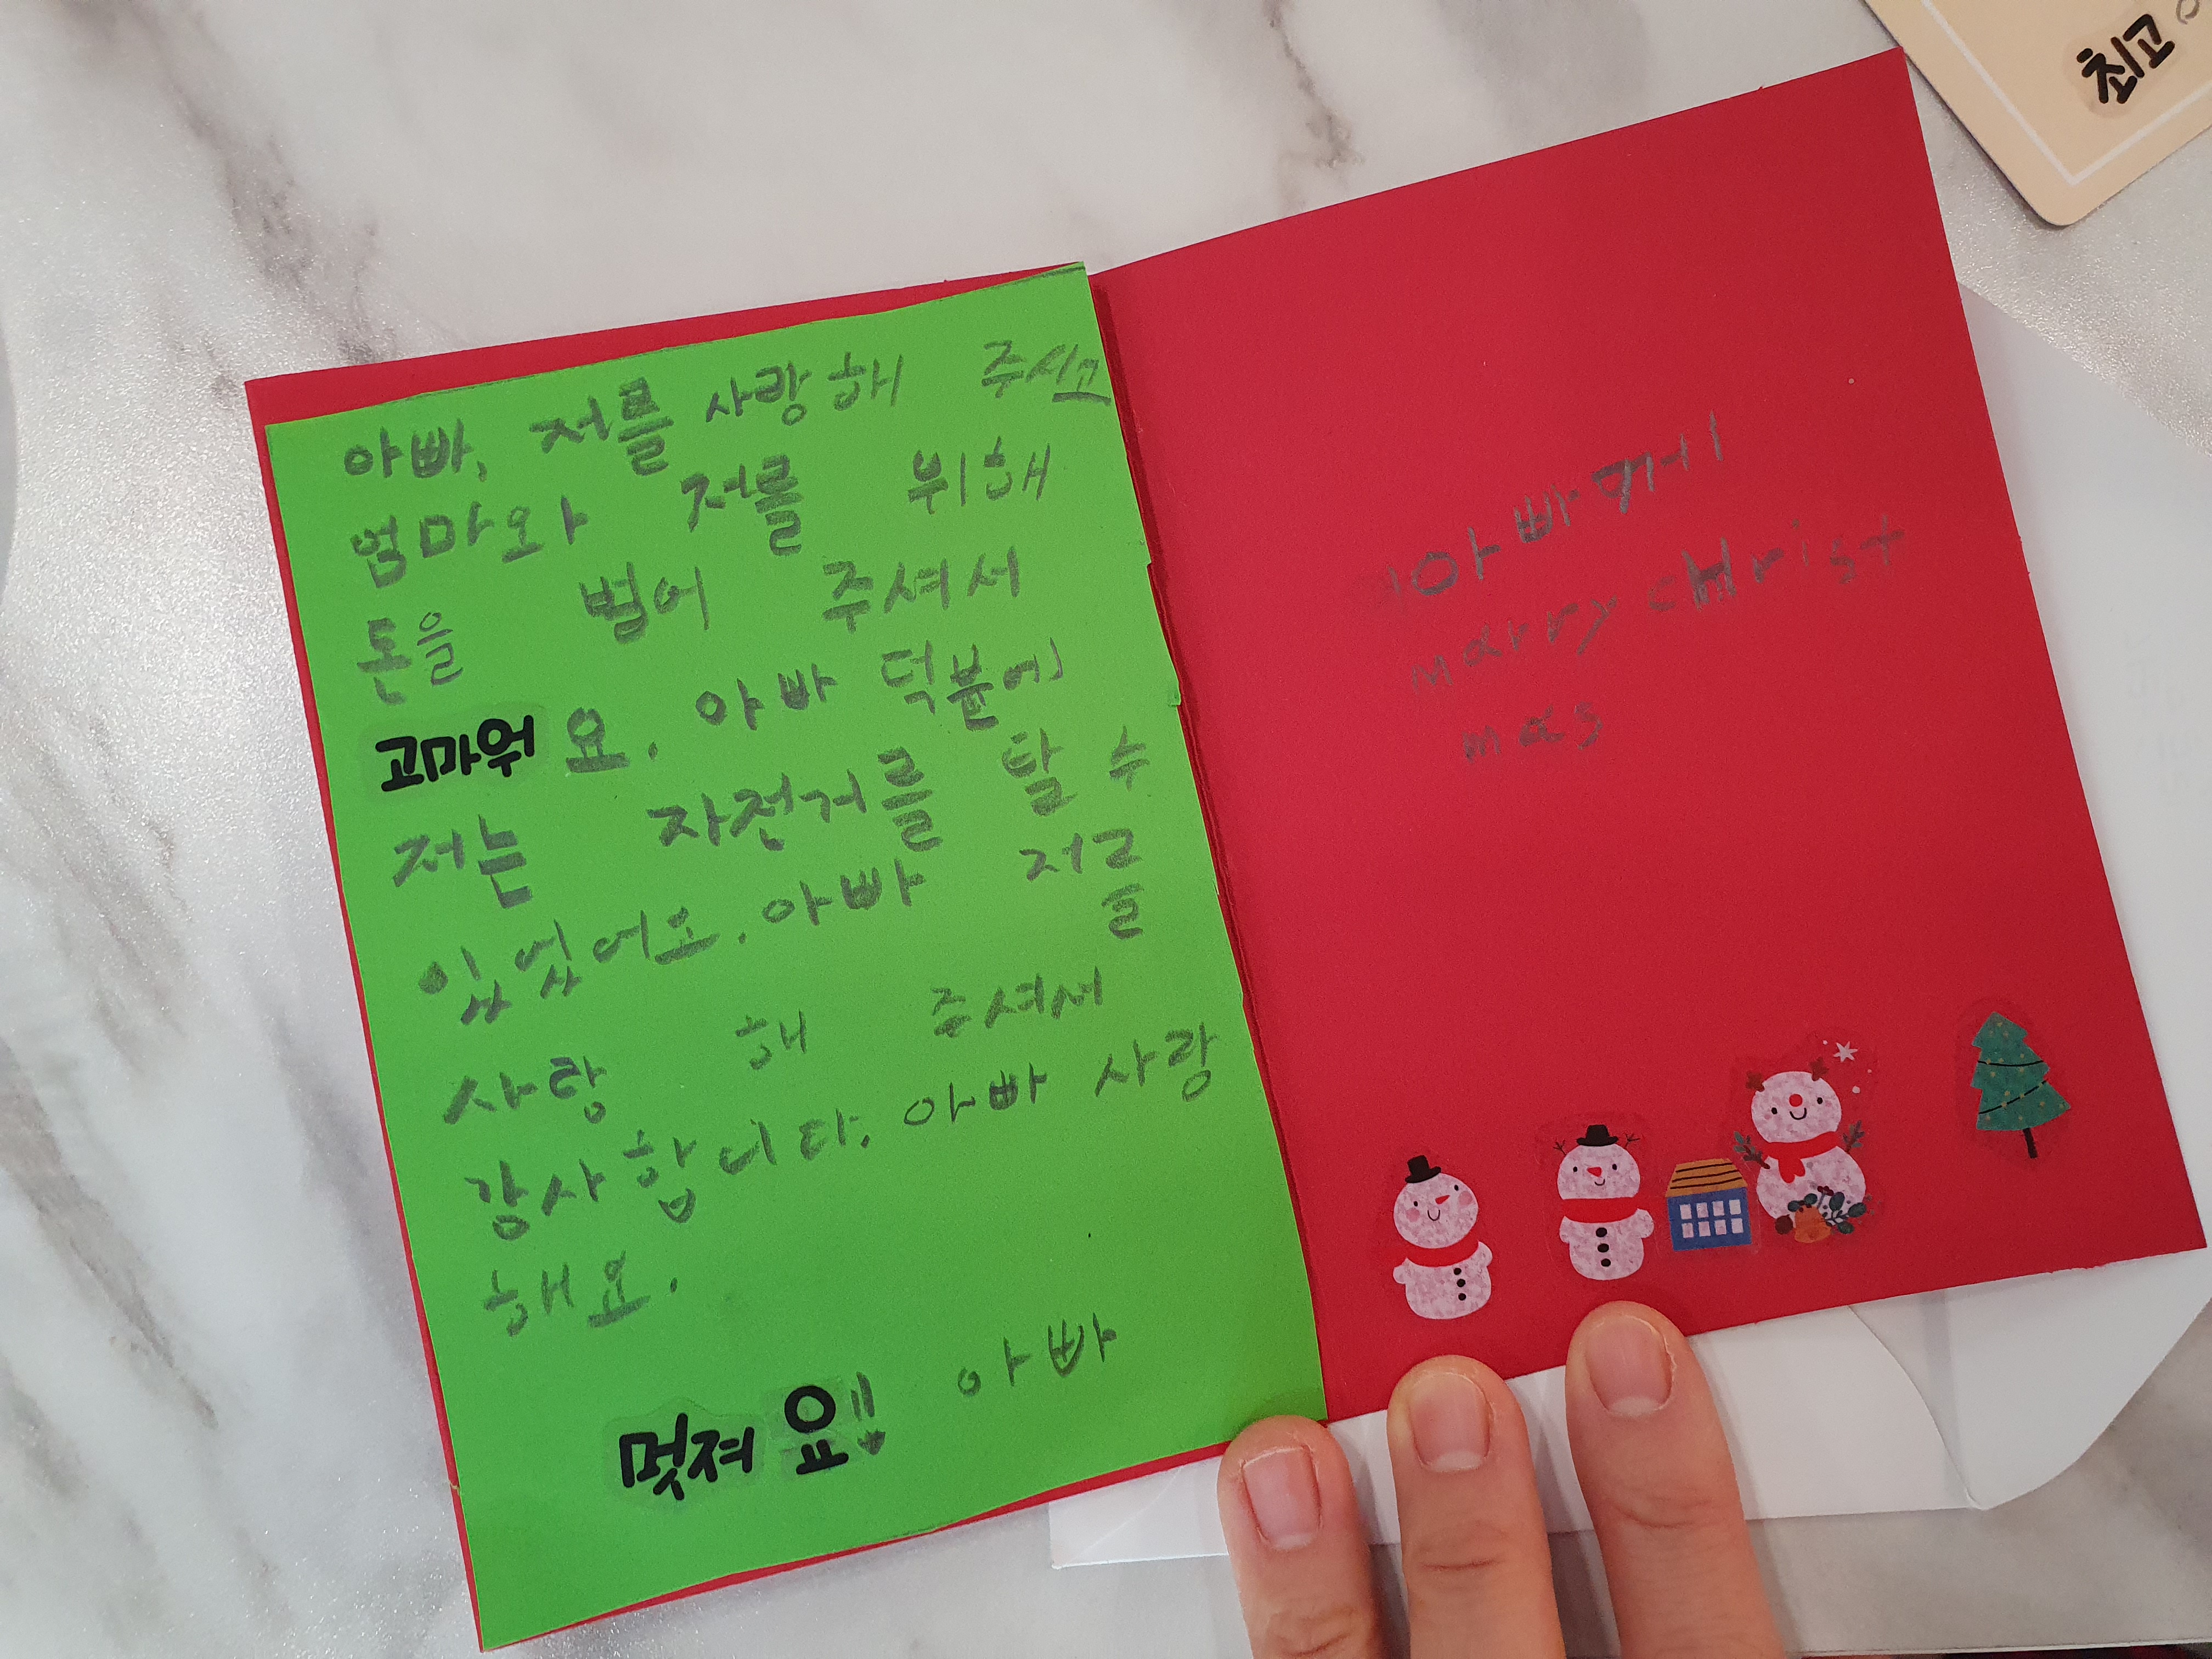 아빠, 저를 사랑해 주시고
엄마와 저를 위해
돈을 벌어 주셔서
고마워요. 아빠 덕분에
저는 자전거를 탈 수
있었어요. 아빠 저를
사랑 해 주셔서
감사합니다. 아빠 사랑
해요.
멋져요!! 아빠
아빠께
marry cHrist
mas
최고